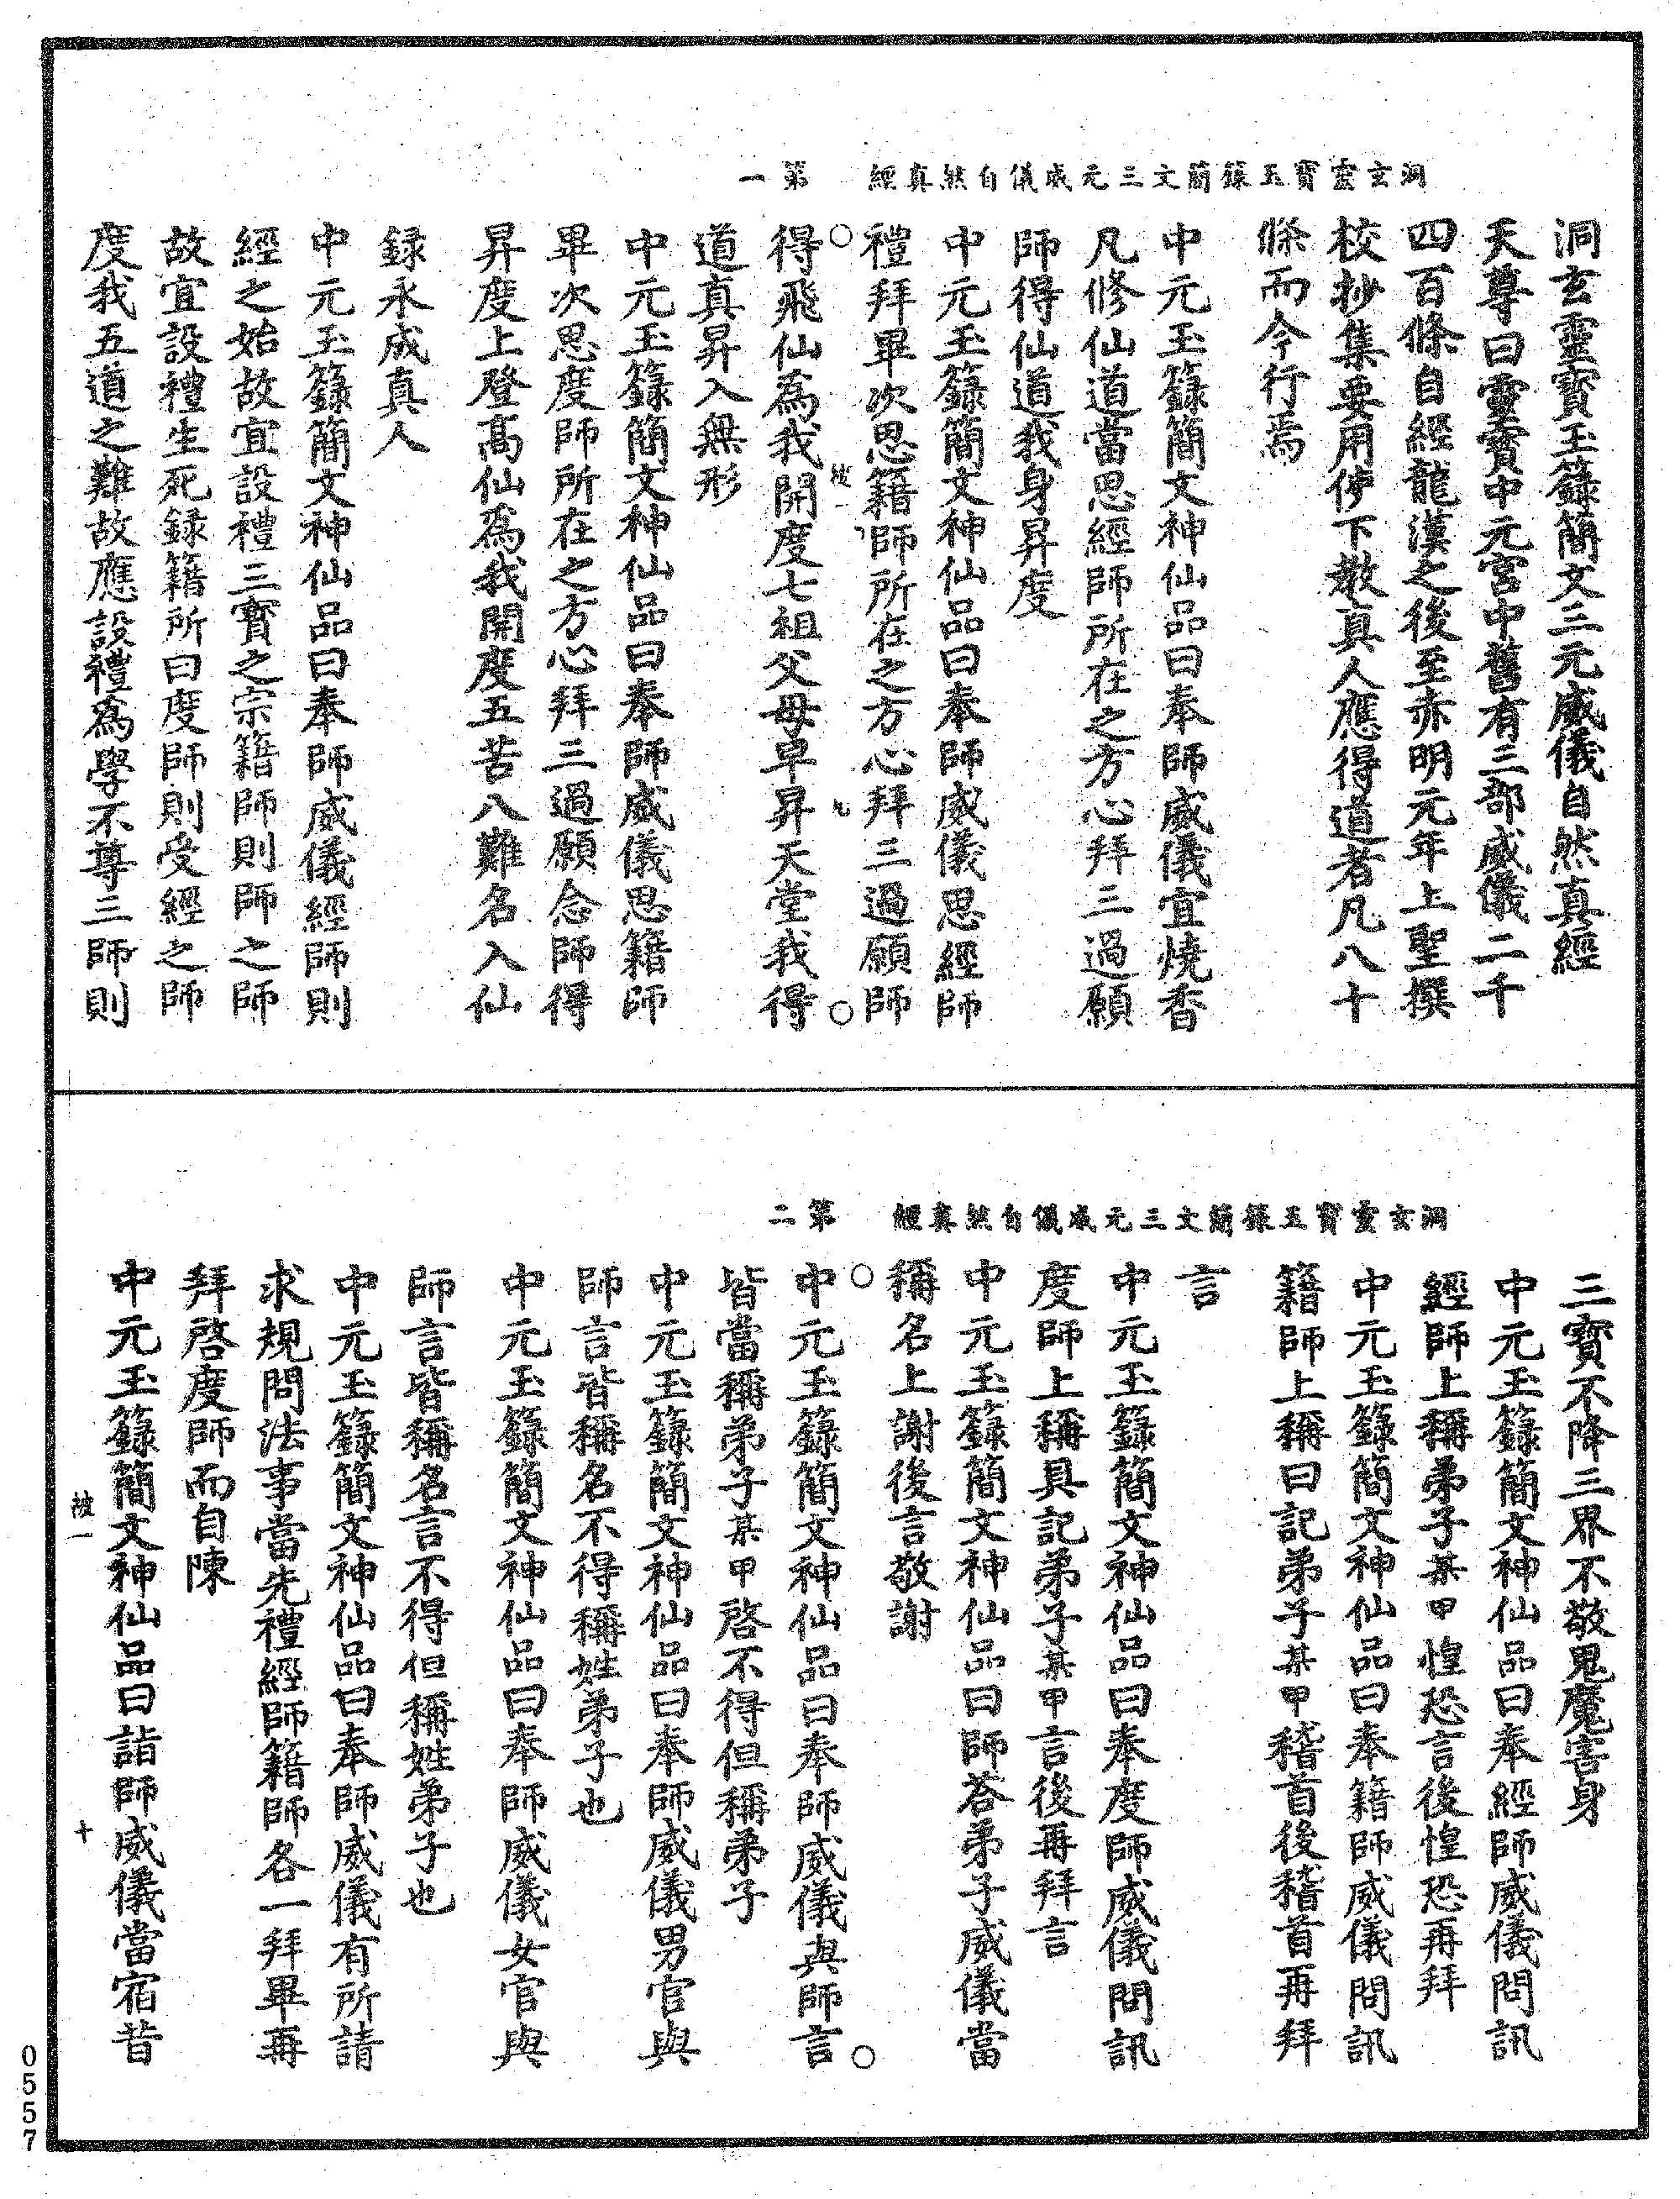 洞玄靈寶玉籙簡文三元威儀自然真經　第一
洞玄靈寶玉籙簡文三元威儀自然真經
天尊曰靈寶中元宮中舊有三部威儀二千
四百條自經龍漢之後至赤明元年上聖撰
校抄集要用俾下教真人應得道者凡八十
條而今行焉
中元玉籙簡文神仙品曰奉師威儀宜燒香
凡修仙道當思經師所在之方心拜三過願
師得仙道我身昇度
中元玉籙簡文神仙品曰奉師威儀思經師
禮拜畢次思籍師所在之方心拜三過願師
得飛仙為我開度七祖父母早昇天堂我得
被一　九
道真昇入無形
中元玉籙簡文神仙品曰奉師威儀思籍師
畢次思度師所在之方心拜三過願念師得
昇度上登高仙為我開度五苦八難名入仙
録永成真人
中元玉籙簡文神仙品曰奉師威儀經師則
經之始故宜設禮三寶之宗籍師則師之師
故宜設禮生死録籍所曰度師則受經之師
度我五道之難故應設禮為學不尊三師則
洞玄靈寶玉籙簡文三元威儀自然真經　第二
三寶不降三界不敬鬼魔害身
中元玉籙簡文神仙品曰奉經師威儀問訊
經師上稱弟子某甲惶恐言後惶恐再拜
中元玉籙簡文神仙品曰奉籍師威儀問訊
籍師上稱曰記弟子某甲稽首後稽首再拜
言
中元玉籙簡文神仙品曰奉度師威儀問訊
度師上稱具記弟子某甲言後再拜言
中元玉籙簡文神仙品曰師荅弟子威儀當
稱名上謝後言敬謝
中元玉籙簡文神仙品曰奉師威儀與師言
皆當稱弟子某甲啓不得但稱弟子
中元玉籙簡文神仙品曰奉師威儀男官與
師言皆稱名不得稱姓弟子也
中元玉籙簡文神仙品曰奉師威儀女官與
師言皆稱名言不得但稱姓弟子也
中元玉籙簡文神仙品曰奉師威儀有所請
求規問法事當先禮經師籍師各一拜畢再
拜啓度師而自陳
中元玉籙簡文神仙品曰詣師威儀當宿昔
被一　十
0557